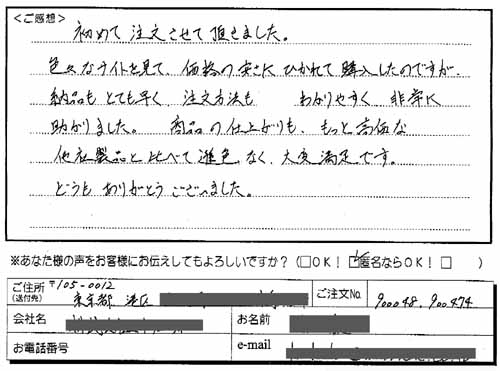 <ご感想>
初めて注文させて頂きました。
色々なサイトを見て、価格の安さにひかれて購入したのですが、
納品もとても早く、注文方法も わかりやすく、非常に
助かりました。 商品の仕上がりも、もっと高価な
他社製品と比べて遜色なく、大変満足です。
どうもありがとうございました。
※あなた様の声をお客様にお伝えしてもよろしいですか?(□OK! □匿名ならOK! □ )
ご住所 〒105-0012
(送付先) 東京都 港区
ご注文No. 900048、900474
会社名
お名前
お電話番号
e-mail